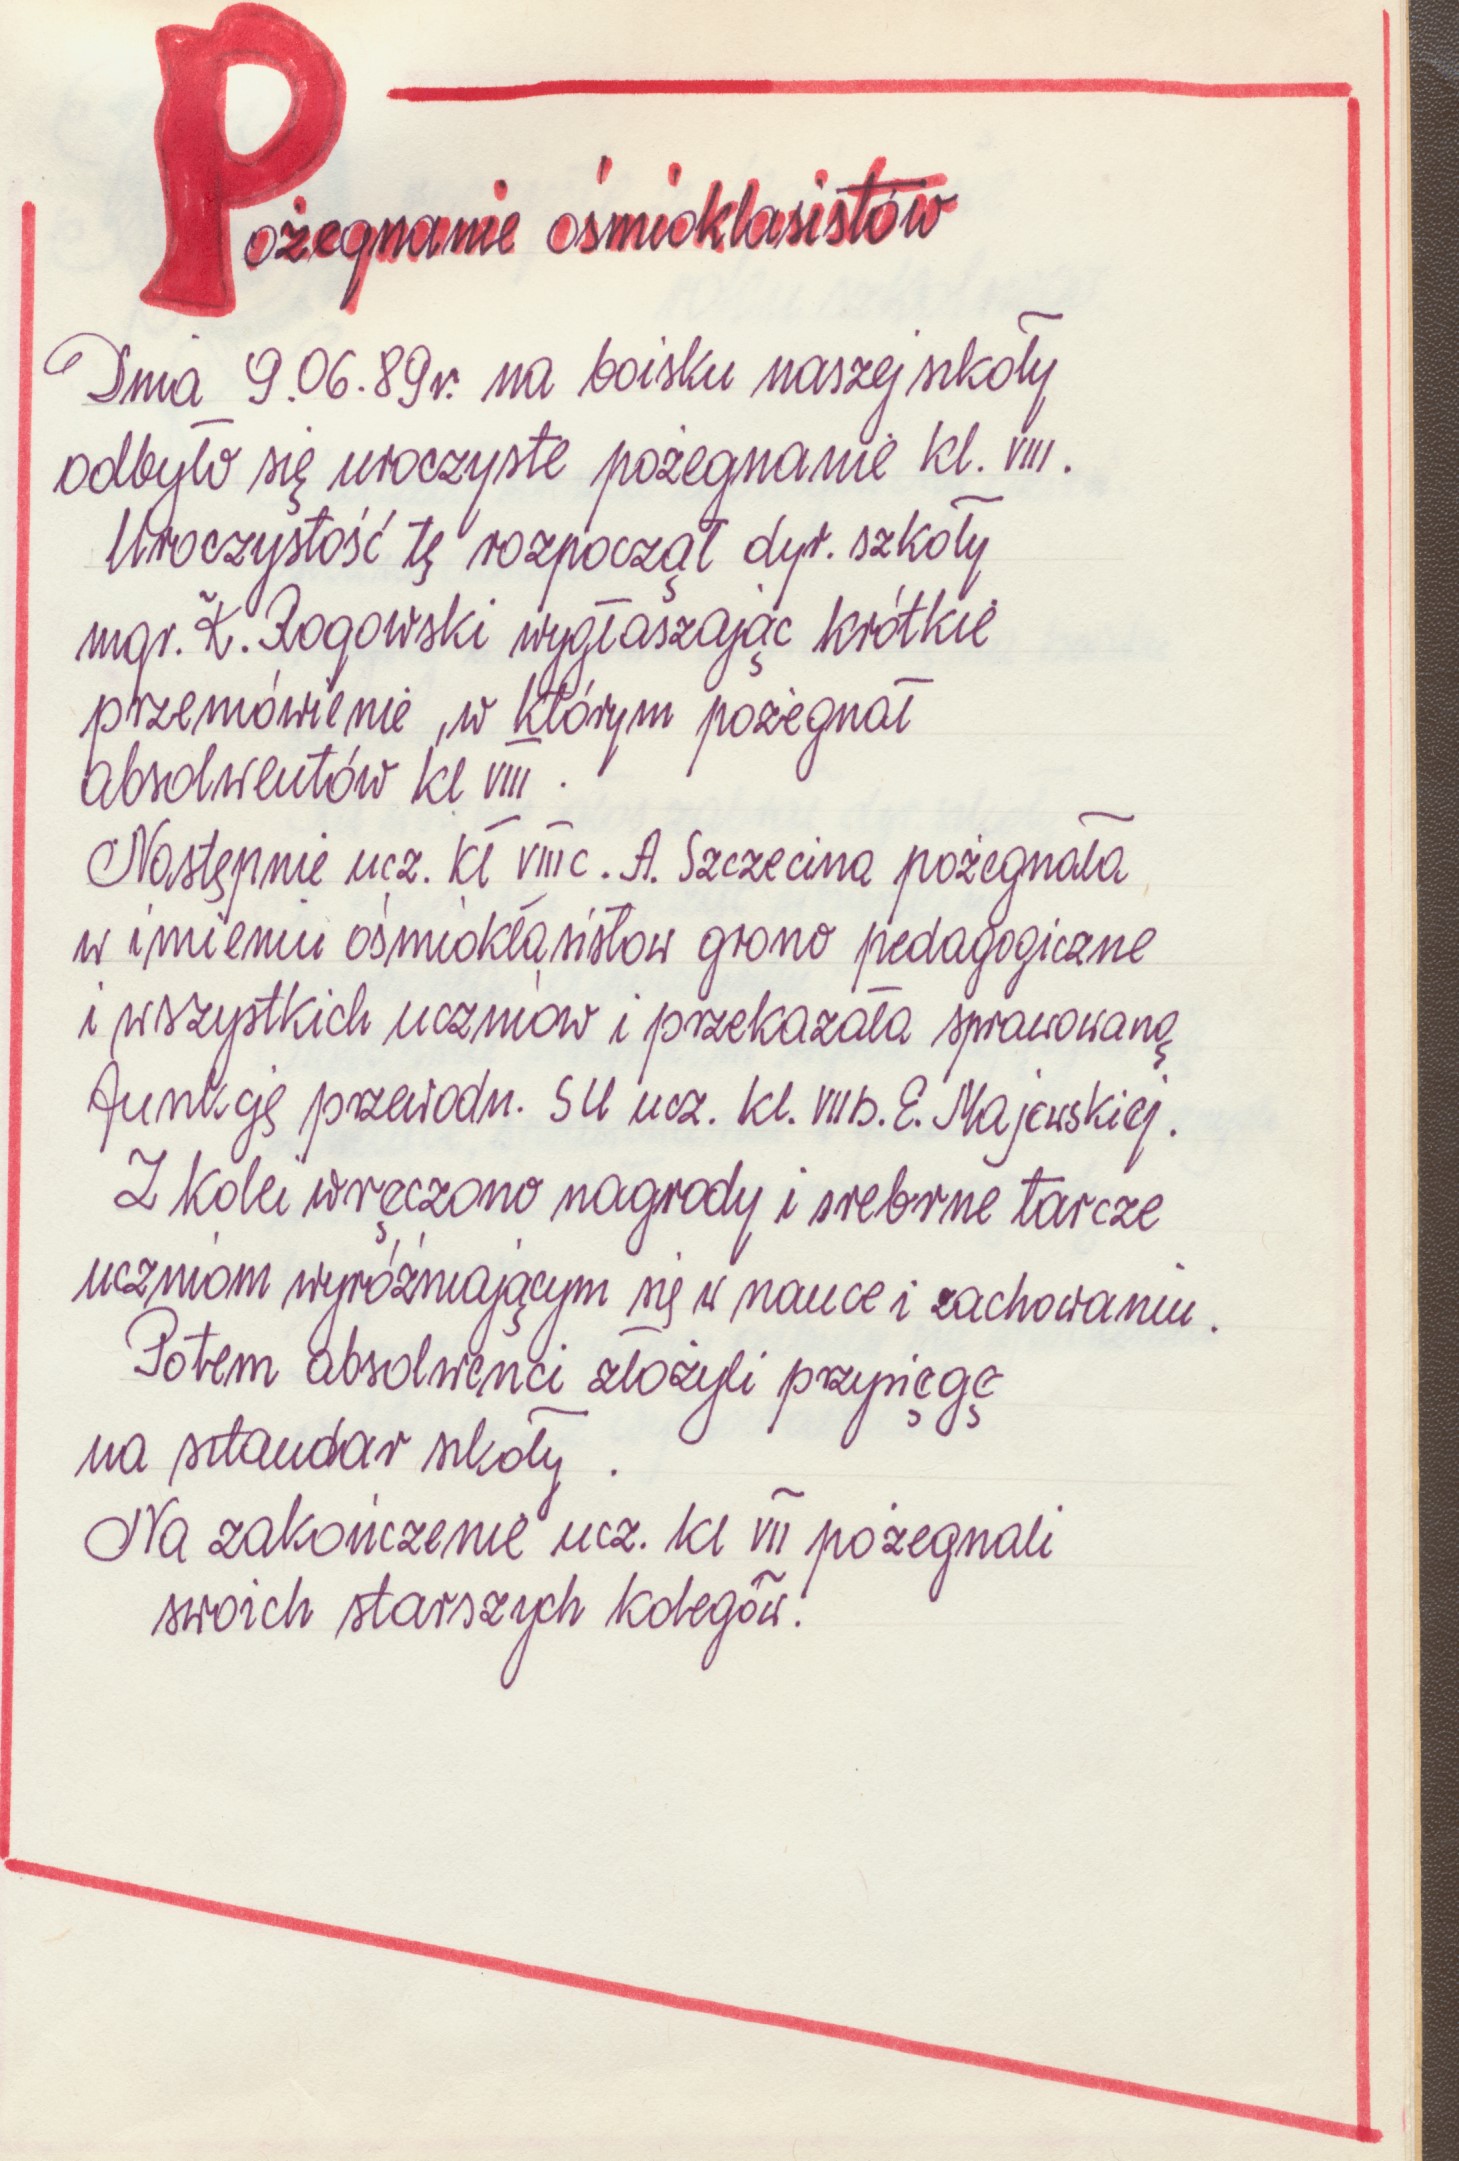 Pożegnanie ośmioklasistów
Dnia 9.06.89r. na boisku naszej szkoły
odbyło się uroczyste pożegnanie kl. VIII.
Uroczystość tę rozpoczął dyr. szkoły
mgr. K. Rogowski wygłaszając krótkie
przemówienie, w którym pożegnał
absolwentów kl VIII.
Następnie ucz. kl VIIIc. A. Szczecina pożegnała
w imieniu ośmiokłasistow grono pedagogiczne
i wszystkich uczniów i przekazała sprawowaną
funkcję przewodn. SU ucz. kl. VIIb. E. Majewskiej.
Z kolei wręczono nagrody i srebrne tarcze
uczniom wyróżniającym się w nauce i zachowaniu.
Potem absolwenci złożyli przysięgę
na sztandar szkoły.
Na zakończenie ucz. kl VII pożegnali
swoich starszych kolegów.